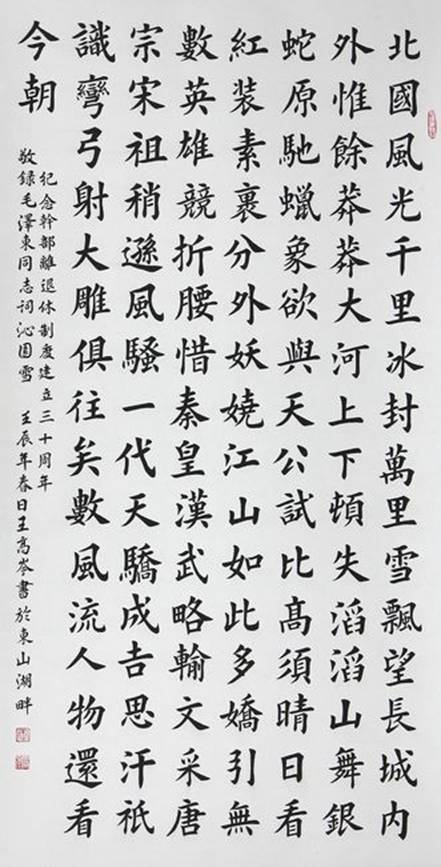 北國風光千里冰封萬里雪飄望長城内
外惟餘莽莽大河上下頓失滔滔山舞銀
蛇原馳蠟象欲與天公試比高須晴日看
紅装素裹分外妖嬈江山如此多嬌引無
數英雄競折腰惜秦皇漢武略輸文采唐
宗宋祖稍遜風騷一代天驕成吉思汗祇
識彎弓射大雕俱往矣數風流人物還看
今朝
纪念幹部離退休制度建立三十周年
敬録毛澤東同志词沁园雪 壬辰年春日王高岑書於東山湖畔